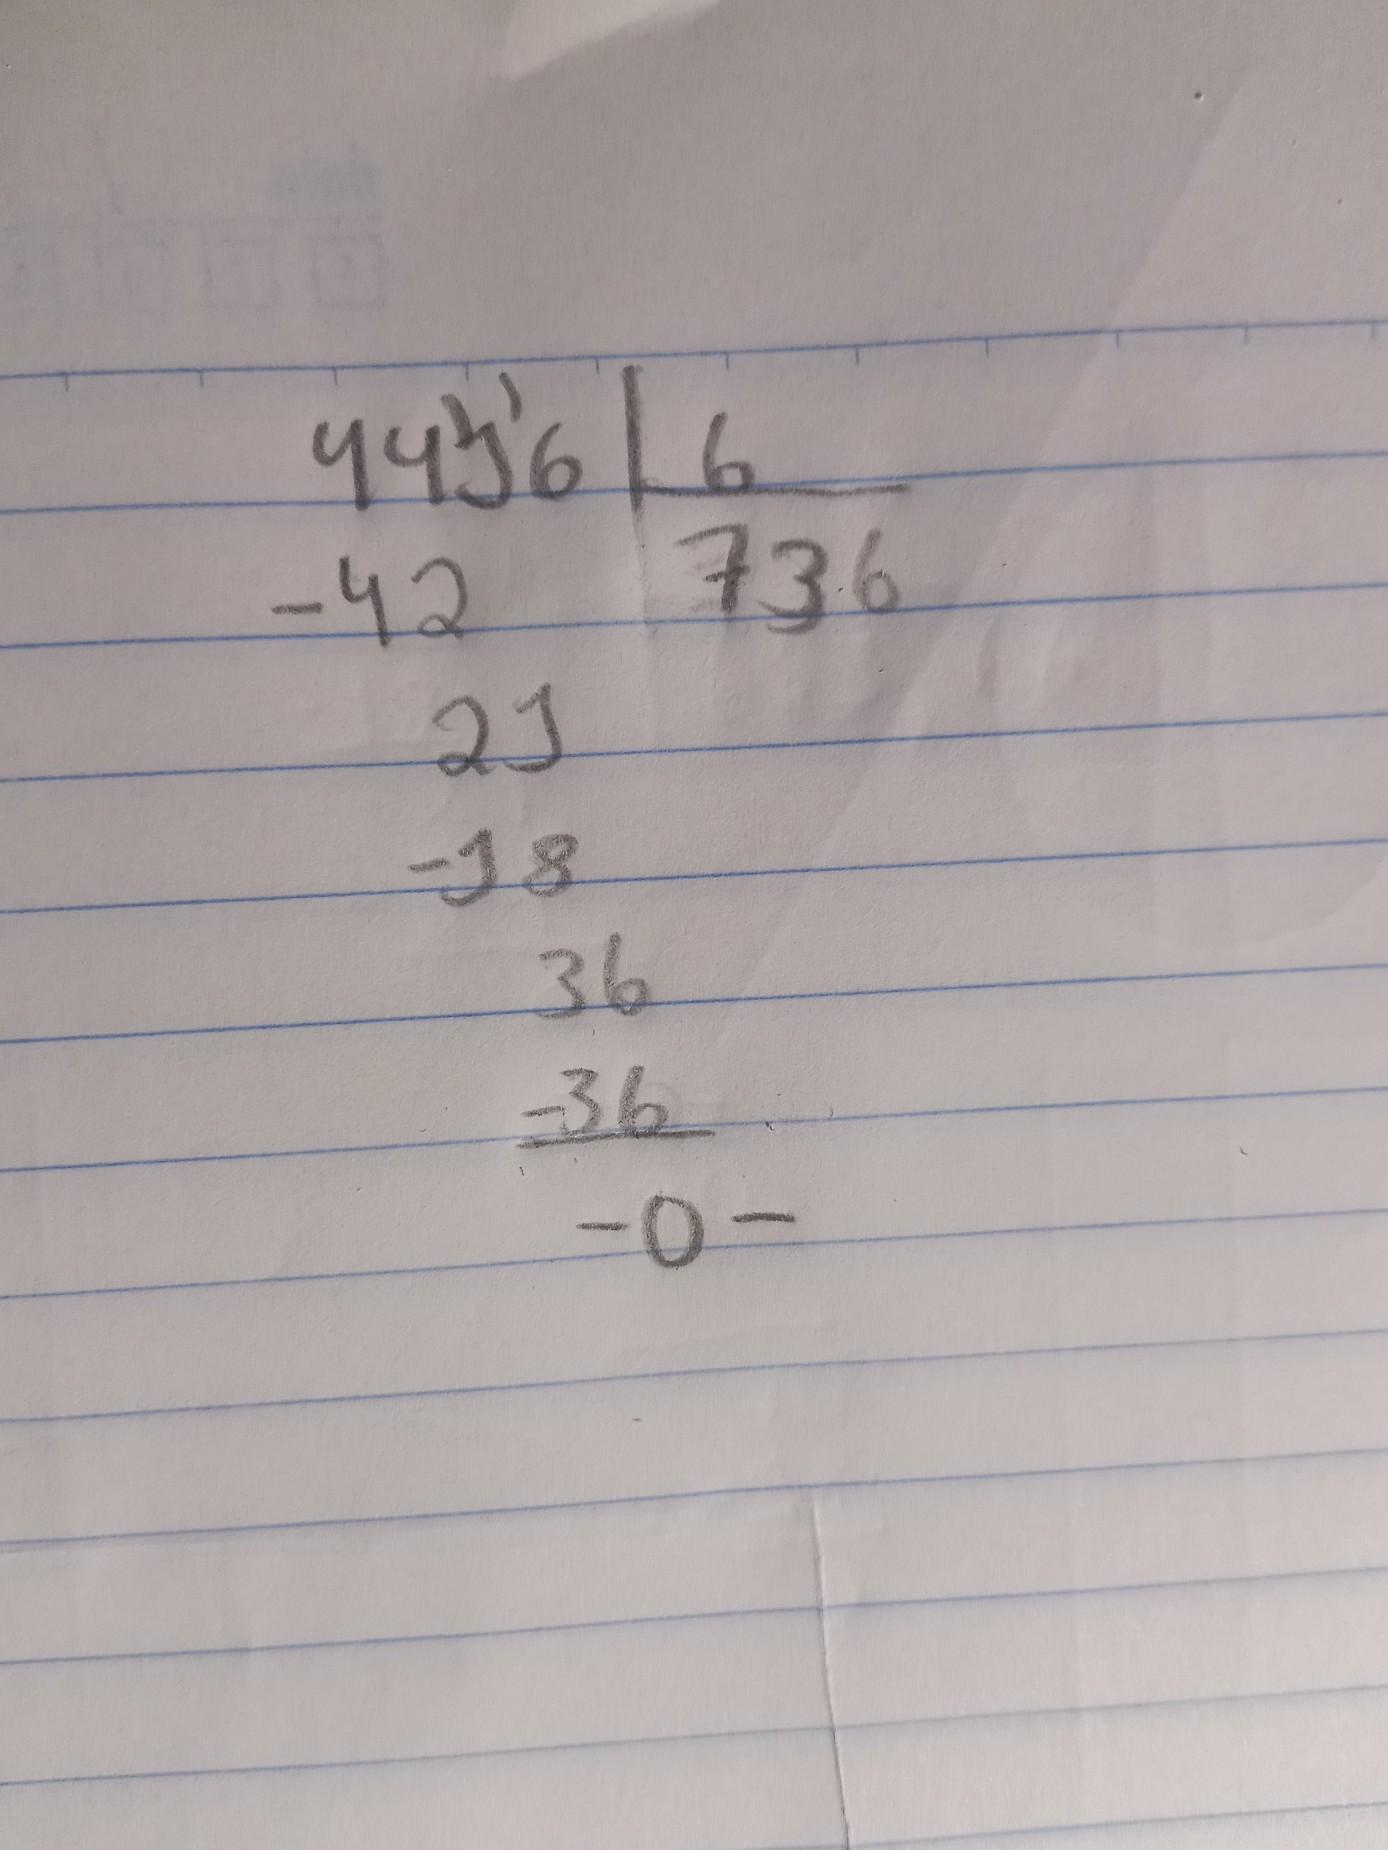 4416 | 6
-42 736
21
-18
36
-36
-0-